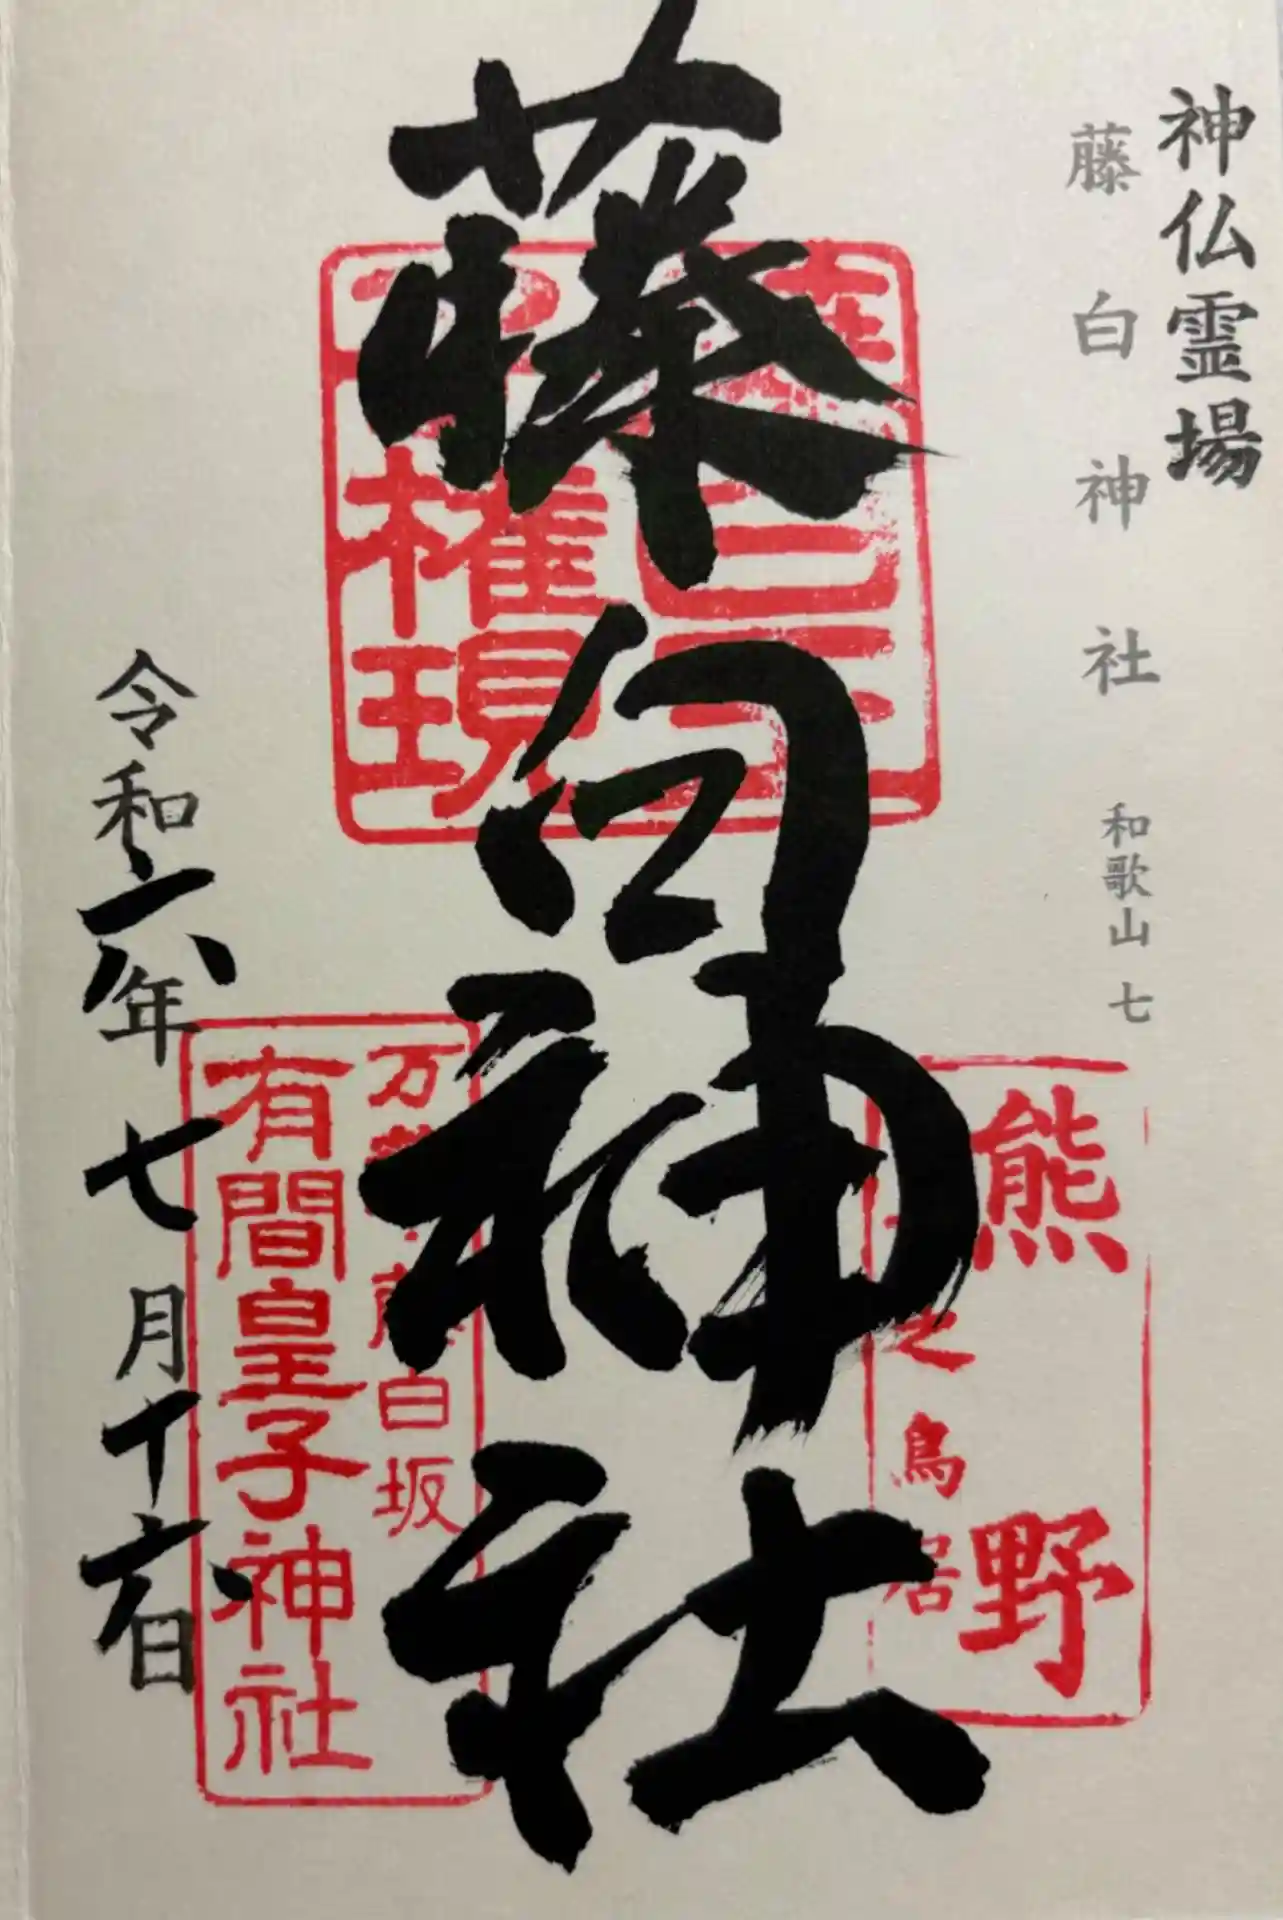 神仏霊場
藤白神社 和歌山 七
藤白神社
権現
熊野
之鳥居
白坂
有間皇子神社
令和六年七月十六日